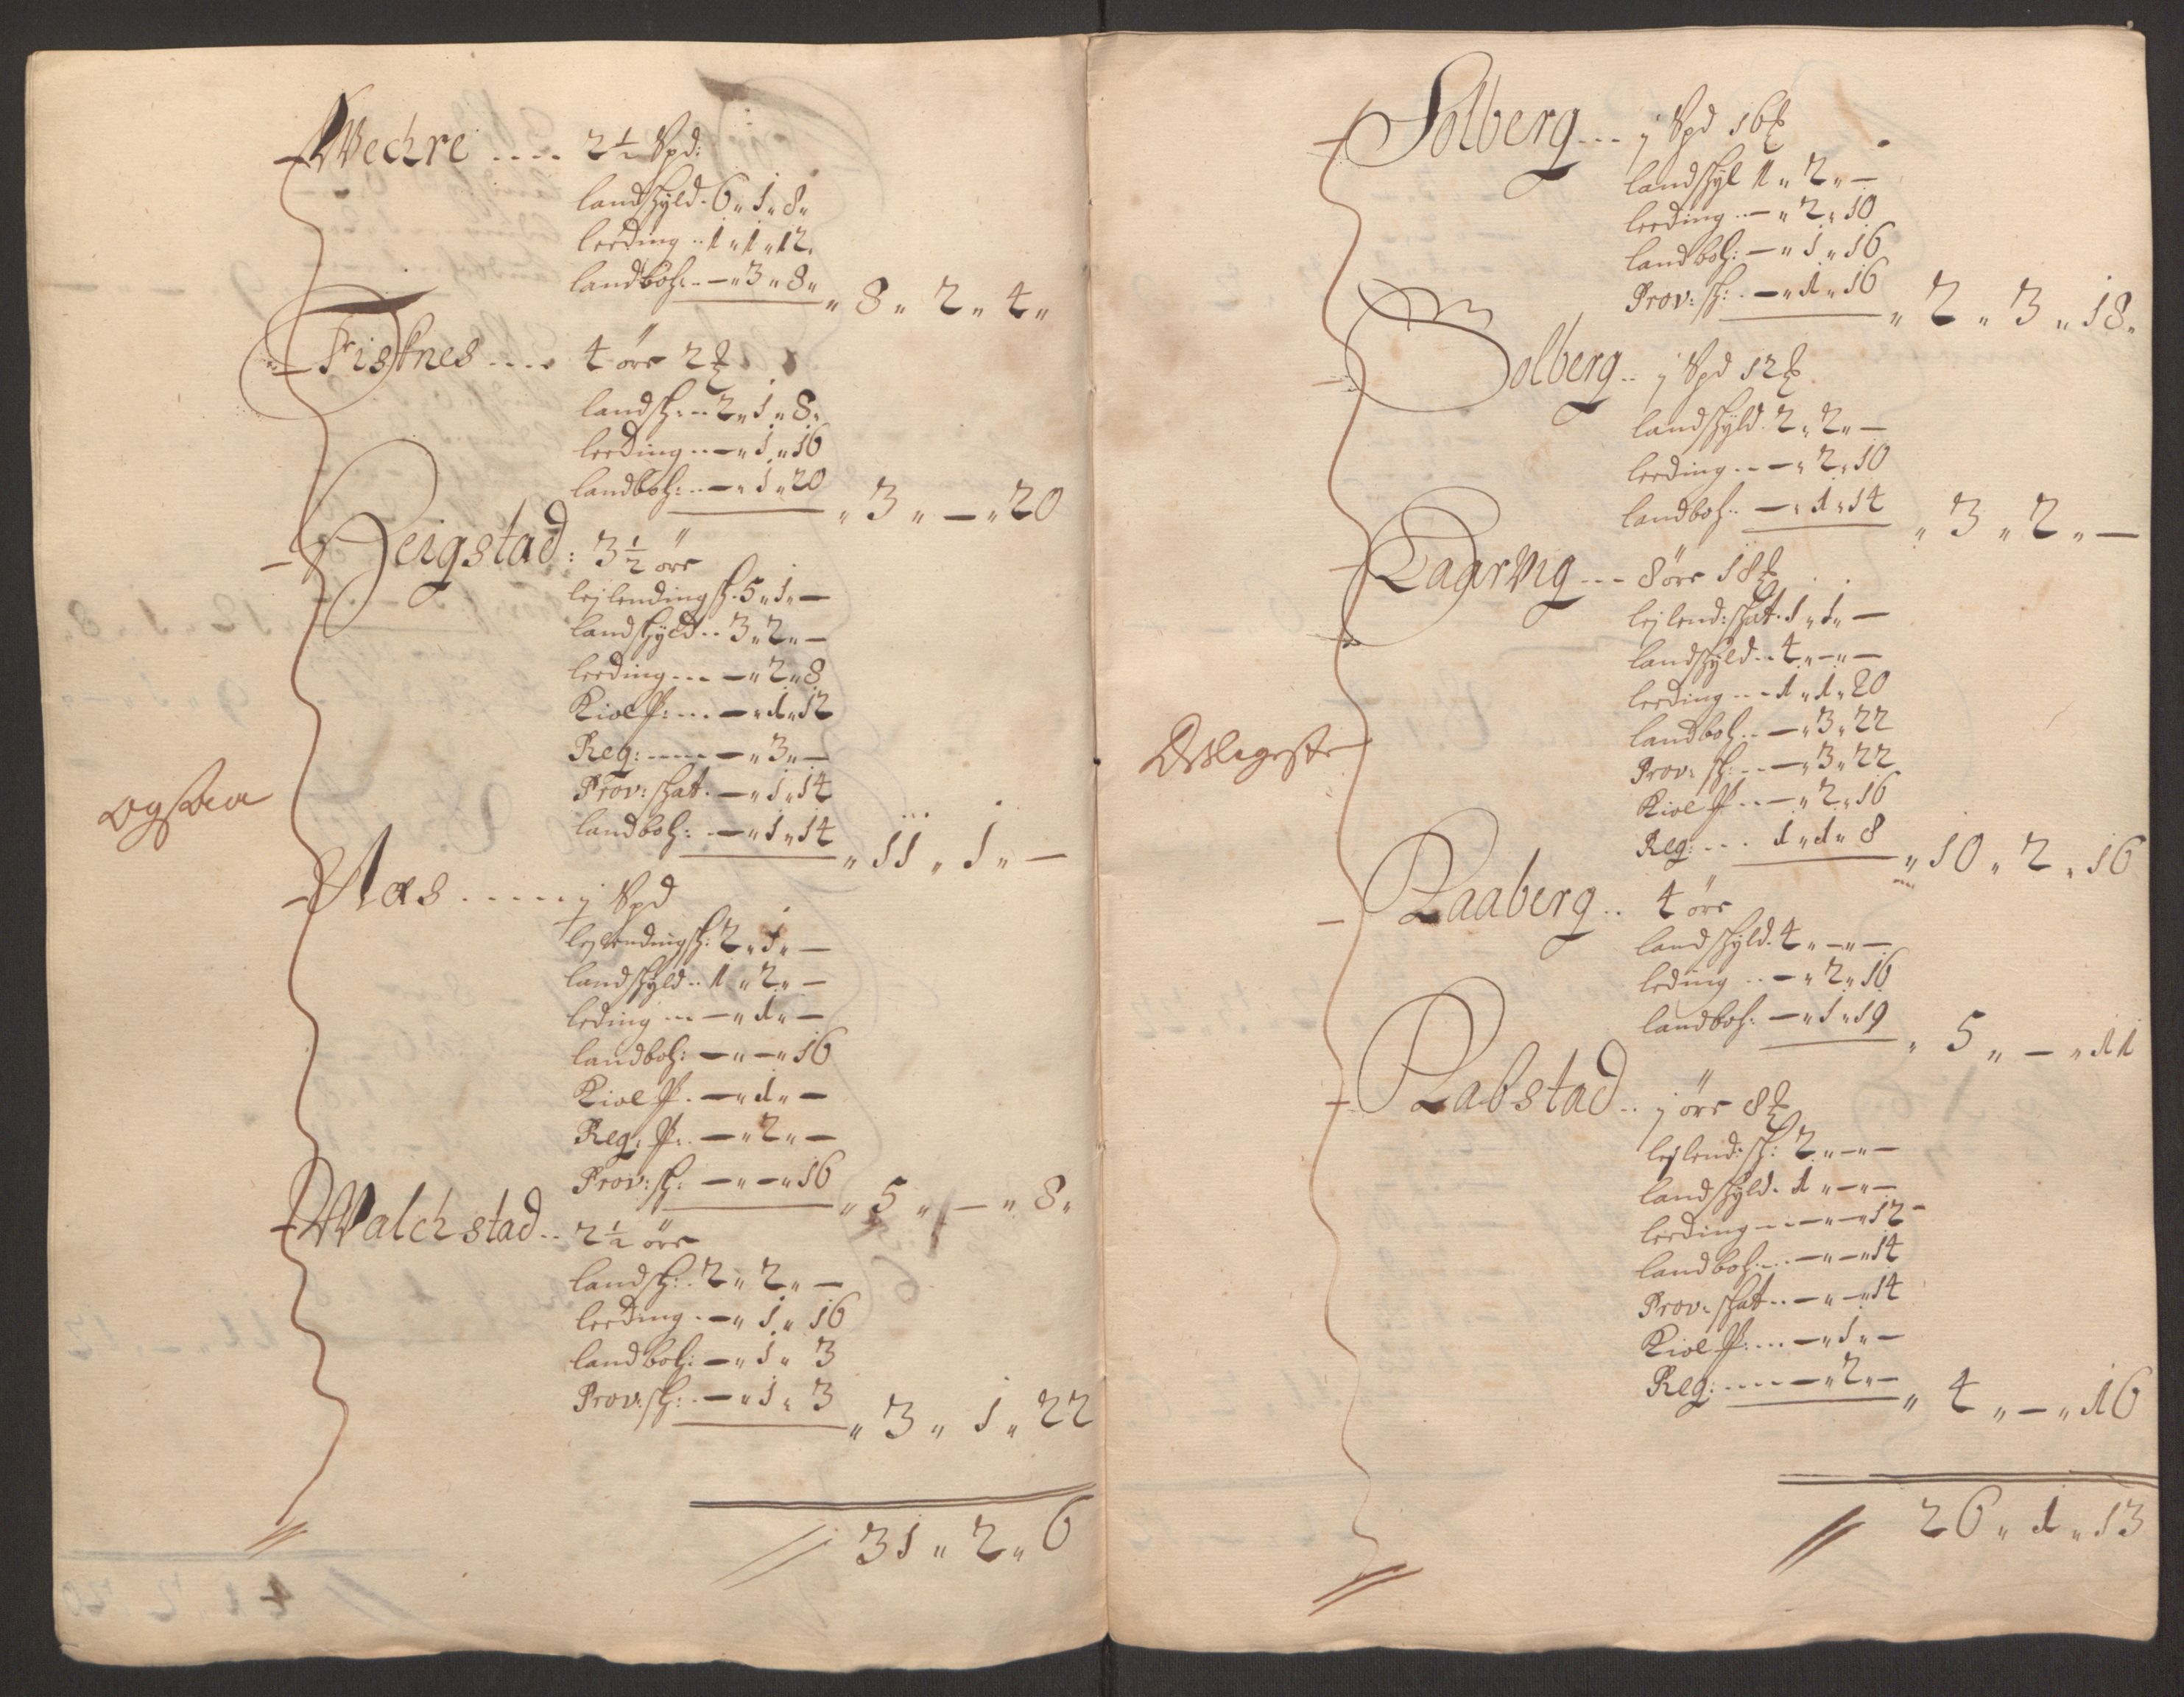 Wechre .... 2½ Spd:
landskyld. 6 „ 1 „ 8 „
leeding .. 1 „ 1 „ 12.
landboh: .. — „ 3 „ 8 „
„ 8 „ 2 „ 4 „
Fisknes .... 4 öre 2
landsk: .. 2 „ 1 „ 8.
leeding .. — „ 1 „ 16
landboh: .. — „ 1 „ 20
„ 3 „ — „ 20
Reigstad : 3½ öre
lejlending sk. 5 „ 1 „ —
landskyld .. 3 „ 2 „ —
leeding ... — „ 2 „ 8
Kiol P: ... — „ 1 „ 12
Reg: ..... — „ 3 „ —
Prov: skat . — „ 1 „ 14
landboh: . — „ 1 „ 14
„ 11 „ 1 „ —
Aas ..... j Spd
lejlending sk: 2 „ 1 „ —
landskyld .. 1 „ 2 „ —
leding ... — „ 1 „ —
landboh: — „ — „ 16
Kiol P. — „ 1 „ —
Reg: P. — „ 2 „ —
Prov: sk: — „ — „ 16
„ 5 „ — „ 8 „
Walchstad .. 2½ öre
landsk: . 2 „ 2 „ —
leeding . — „ 1 „ 16
landboh: — „ 1 „ 3
Prov: sk: . — „ 1 „ 3
„ 3 „ 1 „ 22
// 31 „ 2 „ 6
Solberg ... j Spd 16
landskyl 1 „ 2 „ —
leeding .. — „ 2 „ 10
landboh: — „ 1 „ 16
Prov: sk: . — „ 1 „ 16
„ 2 „ 3 „ 18 „
Solberg .. j Spd 12
landskyld. 2 „ 2 „ —
leeding ... — „ 2 „ 10
landboh .. — „ 1 „ 14
„ 3 „ 2 „ —
8 öre 18
lejlend: skat. 1 „ 1 „ —
landskyld .. 4 „ — „ —
leeding ... 1 „ 1 „ 20
landboh .. — „ 3 „ 22
Prov: sk: .. — „ 3 „ 22
Kiol P .. — „ 2 „ 16
Reg: ... 1 „ 1 „ 8
„ 10 „ 2 „ 16
Raaberg .. 4 öre
landskyld. 4 „ — „ —
leding .. — „ 2 „ 16
landboh: — „ 1 „ 19
„ 5 „ — „ 11
Rabstad .. j öre 8
lejlend: sk: 2 „ — „ —
landskyld. 1 „ — „ —
leeding ... — „ — „ 12
landboh: .. — „ — „ 14
Prov: skat .. — „ — „ 14
Kiol P: ... — „ 1 „ —
Reg: .... — „ 2 „ —
„ 4 „ — „ 16
// 26 „ 1 „ 13